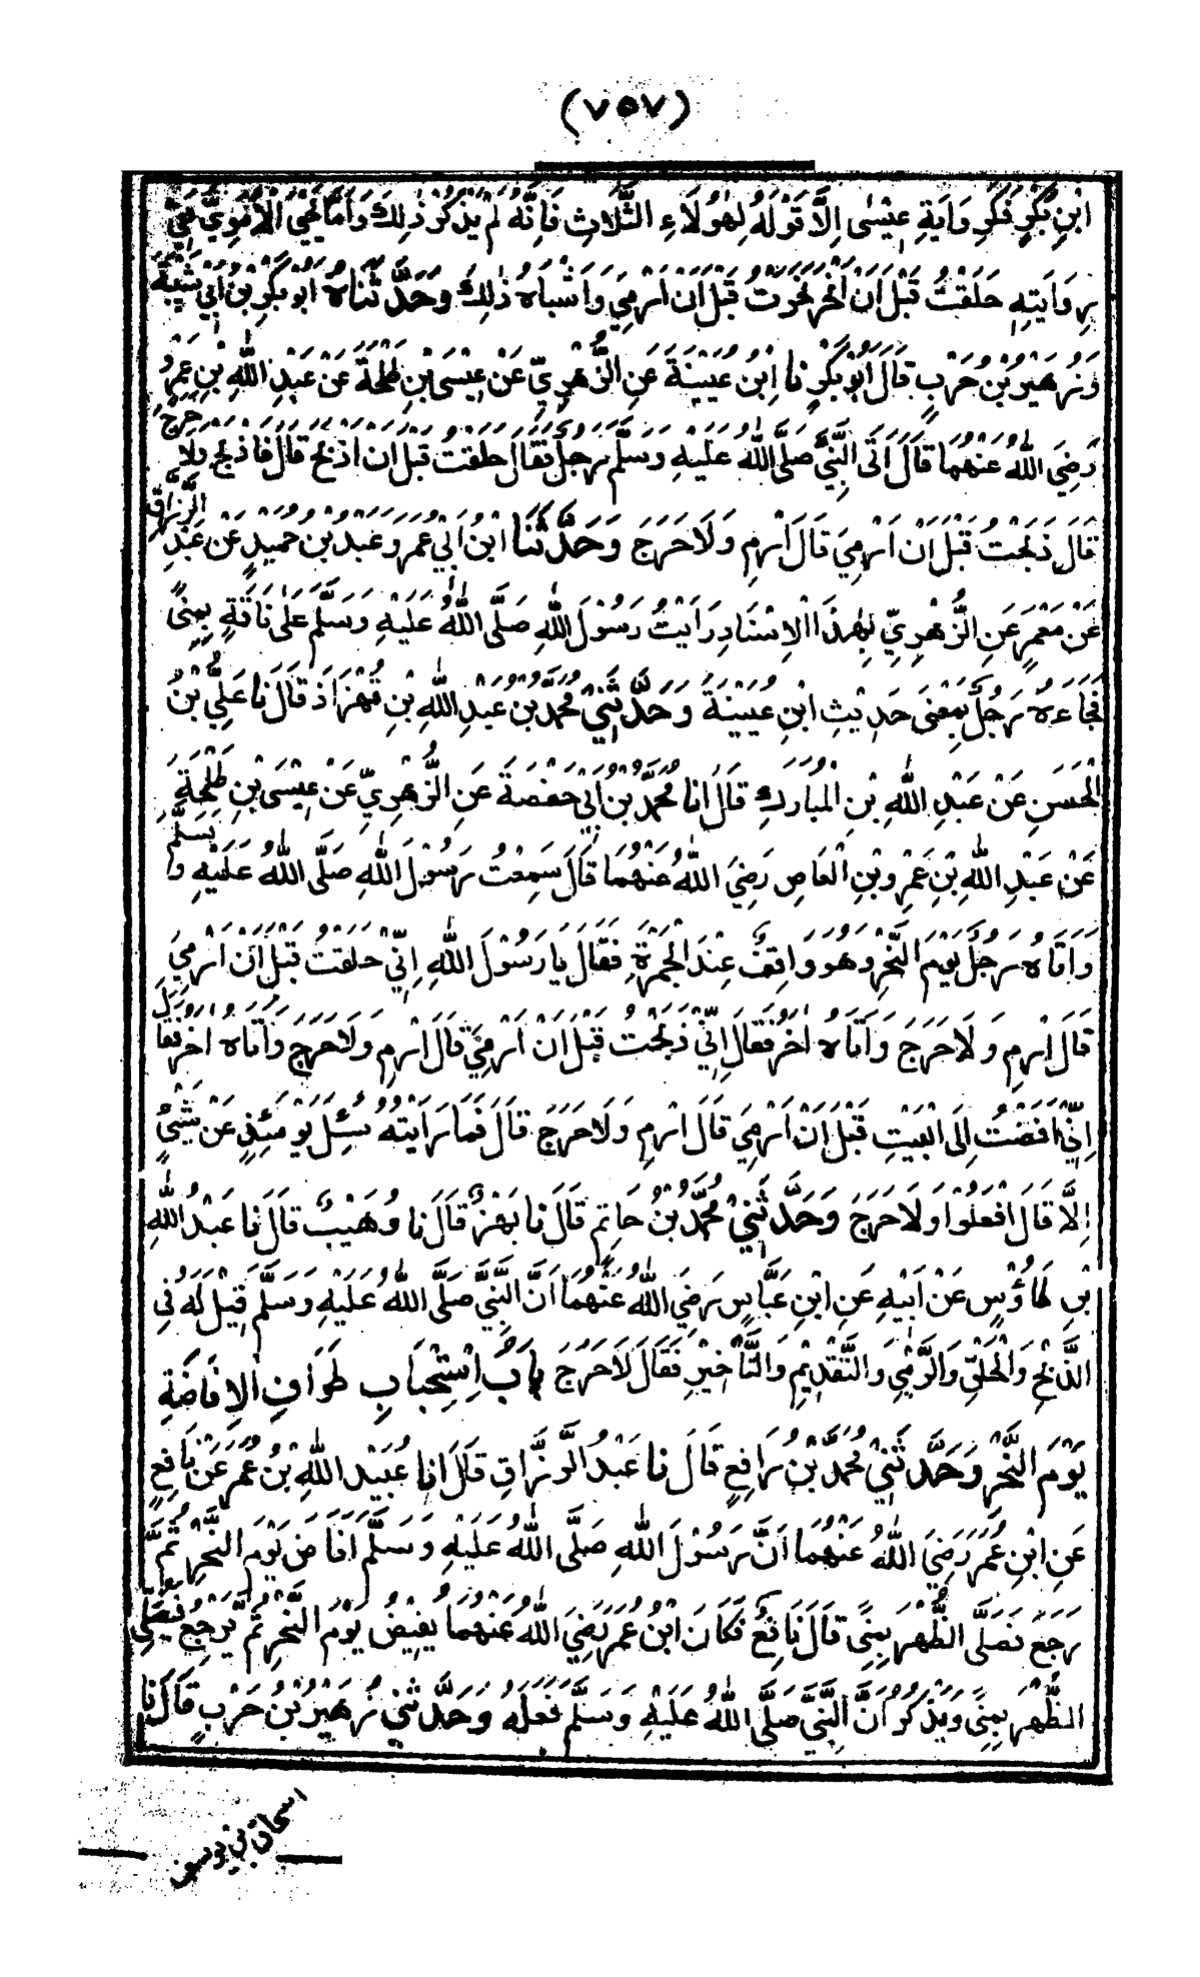 (٧٥٧)
ابْنِ بَكْرٍ فَكَرِوَايَةِ عِيْسٰى اِلَّا قَوْلَهُ لِهٰؤُلَاءِ الثَّلَاثِ فَاِنَّهُ لَمْ يَذْكُرْ ذٰلِكَ وَاَمَّا يَحْيَى الْاُمَوِيُّ فَفِيْ
رِوَايَتِهٖ حَلَقْتُ قَبْلَ اَنْ اَنْحَرَ نَحَرْتُ قَبْلَ اَنْ اَرْمِيَ وَاَشْبَاهُ ذٰلِكَ وَحَدَّثَنَاهُ اَبُوْ بَكْرِ بْنُ اَبِيْ شَيْبَةَ
وَزُهَيْرُ بْنُ حَرْبٍ قَالَ اَبُوْ بَكْرٍ نَا اِبْنُ عُيَيْنَةَ عَنِ الزُّهْرِيِّ عَنْ عِيْسَى بْنِ طَلْحَةَ عَنْ عَبْدِ اللّٰهِ بْنِ عَمْرٍو
رَضِيَ اللّٰهُ عَنْهُمَا قَالَ اَتَى النَّبِيَّ صَلَّى اللّٰهُ عَلَيْهِ وَسَلَّمَ رَجُلٌ فَقَالَ حَلَقْتُ قَبْلَ اَنْ اَذْبَحَ قَالَ فَاذْبَحْ وَلَا حَرَجَ
قَالَ ذَبَحْتُ قَبْلَ اَنْ اَرْمِيَ قَالَ اَرْمِ وَلَا حَرَجَ وَحَدَّثَنَا ابْنُ اَبِيْ عُمَرَ وَعَبْدُ بْنُ حُمَيْدٍ عَنْ عَبْدِ الرَّزَّاقِ
عَنْ مَعْمَرٍ عَنِ الزُّهْرِيِّ بِهٰذَا الْاِسْنَادِ رَاَيْتُ رَسُوْلَ اللّٰهِ صَلَّى اللّٰهُ عَلَيْهِ وَسَلَّمَ عَلٰى نَاقَةٍ بِمِنًى
فَجَاءَهُ رَجُلٌ بِمَعْنَى حَدِيْثِ ابْنِ عُيَيْنَةَ وَحَدَّثَنِيْ مُحَمَّدُ بْنُ عَبْدِ اللّٰهِ بْنِ قُهْزَاذَ قَالَ نَا عَلِيُّ بْنُ
الْحَسَنِ عَنْ عَبْدِ اللّٰهِ بْنِ الْمُبَارَكِ قَالَ اَنَا مُحَمَّدُ بْنُ اَبِيْ حَفْصَةَ عَنِ الزُّهْرِيِّ عَنْ عِيْسَى بْنِ طَلْحَةَ
عَنْ عَبْدِ اللّٰهِ بْنِ عَمْرِو بْنِ الْعَاصِ رَضِيَ اللّٰهُ عَنْهُمَا قَالَ سَمِعْتُ رَسُوْلَ اللّٰهِ صَلَّى اللّٰهُ عَلَيْهِ وَسَلَّمَ
وَاَتَاهُ رَجُلٌ يَوْمَ النَّحْرِ وَهُوَ وَاقِفٌ عِنْدَ الْجَمْرَةِ فَقَالَ يَا رَسُوْلَ اللّٰهِ اِنِّيْ حَلَقْتُ قَبْلَ اَنْ اَرْمِيَ
قَالَ اِرْمِ وَلَا حَرَجَ وَاَتَاهُ اٰخَرُ فَقَالَ اِنِّيْ ذَبَحْتُ قَبْلَ اَنْ اَرْمِيَ قَالَ اِرْمِ وَلَا حَرَجَ وَاَتَاهُ اٰخَرُ فَقَالَ
اِنِّيْ اَفَضْتُ اِلَى الْبَيْتِ قَبْلَ اَنْ اَرْمِيَ قَالَ ارْمِ وَلَا حَرَجَ قَالَ فَمَا رَاَيْتُهُ سُئِلَ يَوْمَئِذٍ عَنْ شَيْءٍ
اِلَّا قَالَ افْعَلُوْا وَلَا حَرَجَ وَحَدَّثَنِيْ مُحَمَّدُ بْنُ حَاتِمٍ قَالَ نَا بَهْزٌ قَالَ نَا وُهَيْبٌ قَالَ نَا عَبْدُ اللّٰهِ
بْنِ طَاوُسٍ عَنْ اَبِيْهِ عَنِ ابْنِ عَبَّاسٍ رَضِيَ اللّٰهُ عَنْهُمَا اَنَّ النَّبِيَّ صَلَّى اللّٰهُ عَلَيْهِ وَسَلَّمَ قِيْلَ لَهُ فِي
الذَّبْحِ وَالْحَلْقِ وَالرَّمْيِ وَالتَّقْدِيْمِ وَالتَّأْخِيْرِ فَقَالَ لَا حَرَجَ بَابُ اِسْتِحْبَابِ طَوَافِ الْاِفَاضَةِ
يَوْمَ النَّحْرِ وَحَدَّثَنِيْ مُحَمَّدُ بْنُ رَافِعٍ قَالَ نَا عَبْدُ الرَّزَّاقِ قَالَ اَنَا عُبَيْدُ اللّٰهِ بْنُ عُمَرَ عَنْ نَافِعٍ
عَنِ ابْنِ عُمَرَ رَضِيَ اللّٰهُ عَنْهُمَا اَنَّ رَسُوْلَ اللّٰهِ صَلَّى اللّٰهُ عَلَيْهِ وَسَلَّمَ اَفَاضَ يَوْمَ النَّحْرِ ثُمَّ
رَجَعَ فَصَلَّى الظُّهْرَ بِمِنًى قَالَ نَافِعٌ فَكَانَ ابْنُ عُمَرَ رَضِيَ اللّٰهُ عَنْهُمَا يُفِيْضُ يَوْمَ النَّحْرِ ثُمَّ يَرْجِعُ فَيُصَلِّي
الظُّهْرَ بِمِنًى وَيَذْكُرُ اَنَّ النَّبِيَّ صَلَّى اللّٰهُ عَلَيْهِ وَسَلَّمَ فَعَلَهُ وَحَدَّثَنِيْ زُهَيْرُ بْنُ حَرْبٍ قَالَ نَا
اسحاق بن يوسف